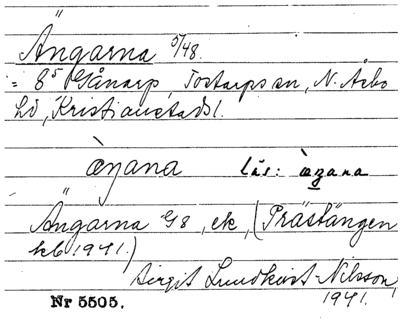 Ängarna 5/48.
= 8⁵ Gånarp, Tostarps sn, N. Åsbo
hd, Kristianstads l.
æŋana läs: æŋana
Ängarna G8, ek, (Prästängen
kb 1941.)
Birgit Lundkvist-Nilsson,
1941.
Nr 5505.